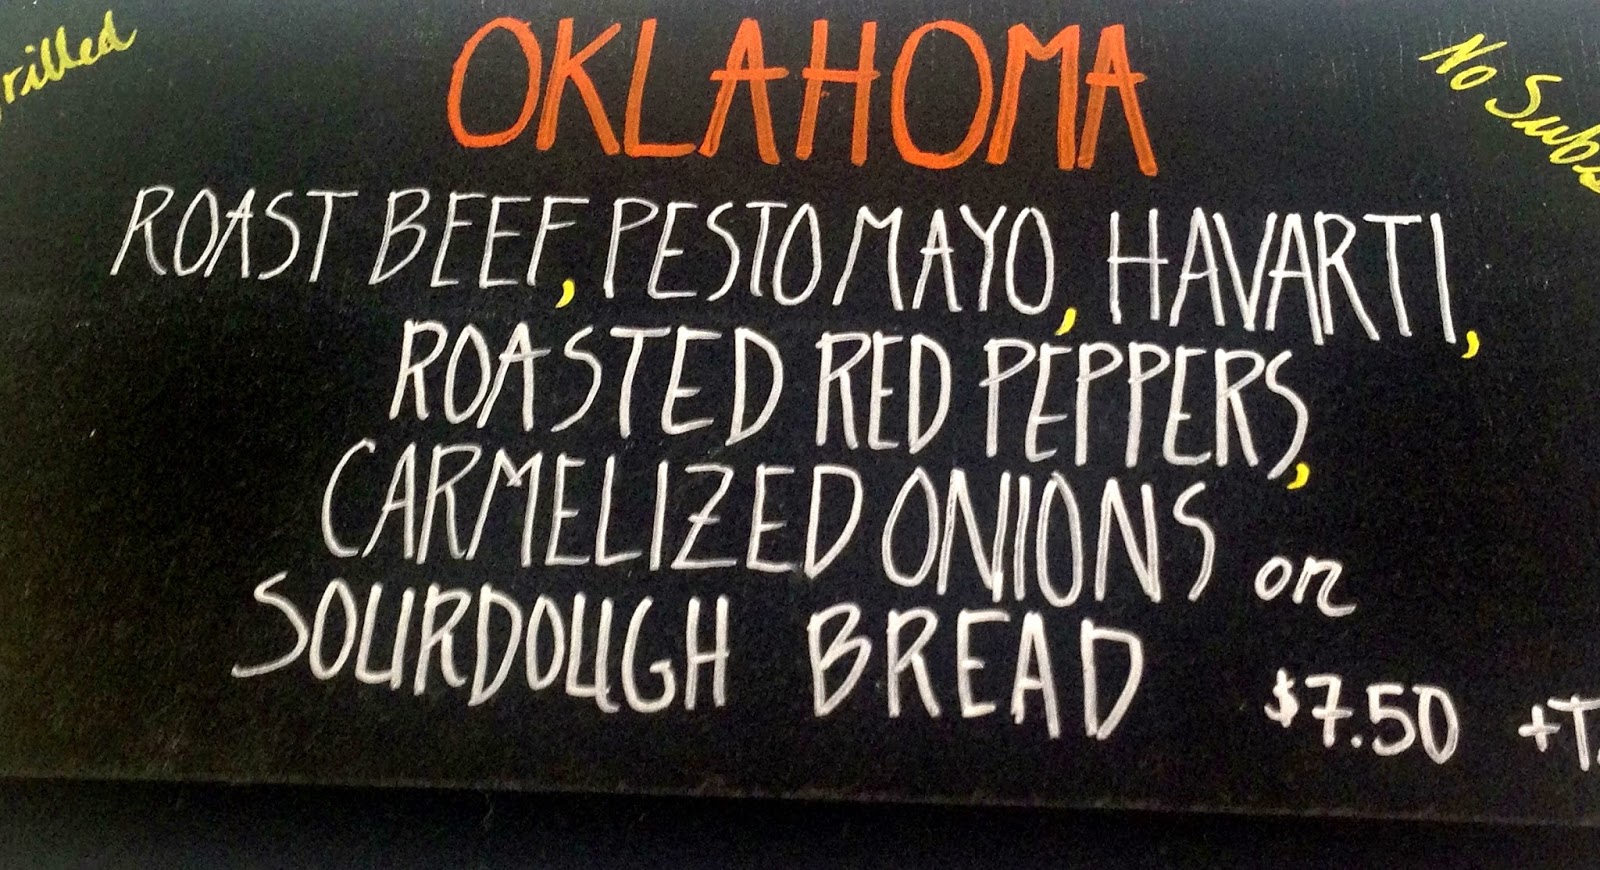 rilled
OKLAHOMA
No Subs
ROAST BEEF, PESTO MAYO, HAVARTI,
ROASTED RED PEPPERS,
CARMELIZED ONIONS on
SOURDOUGH BREAD $7.50 +T